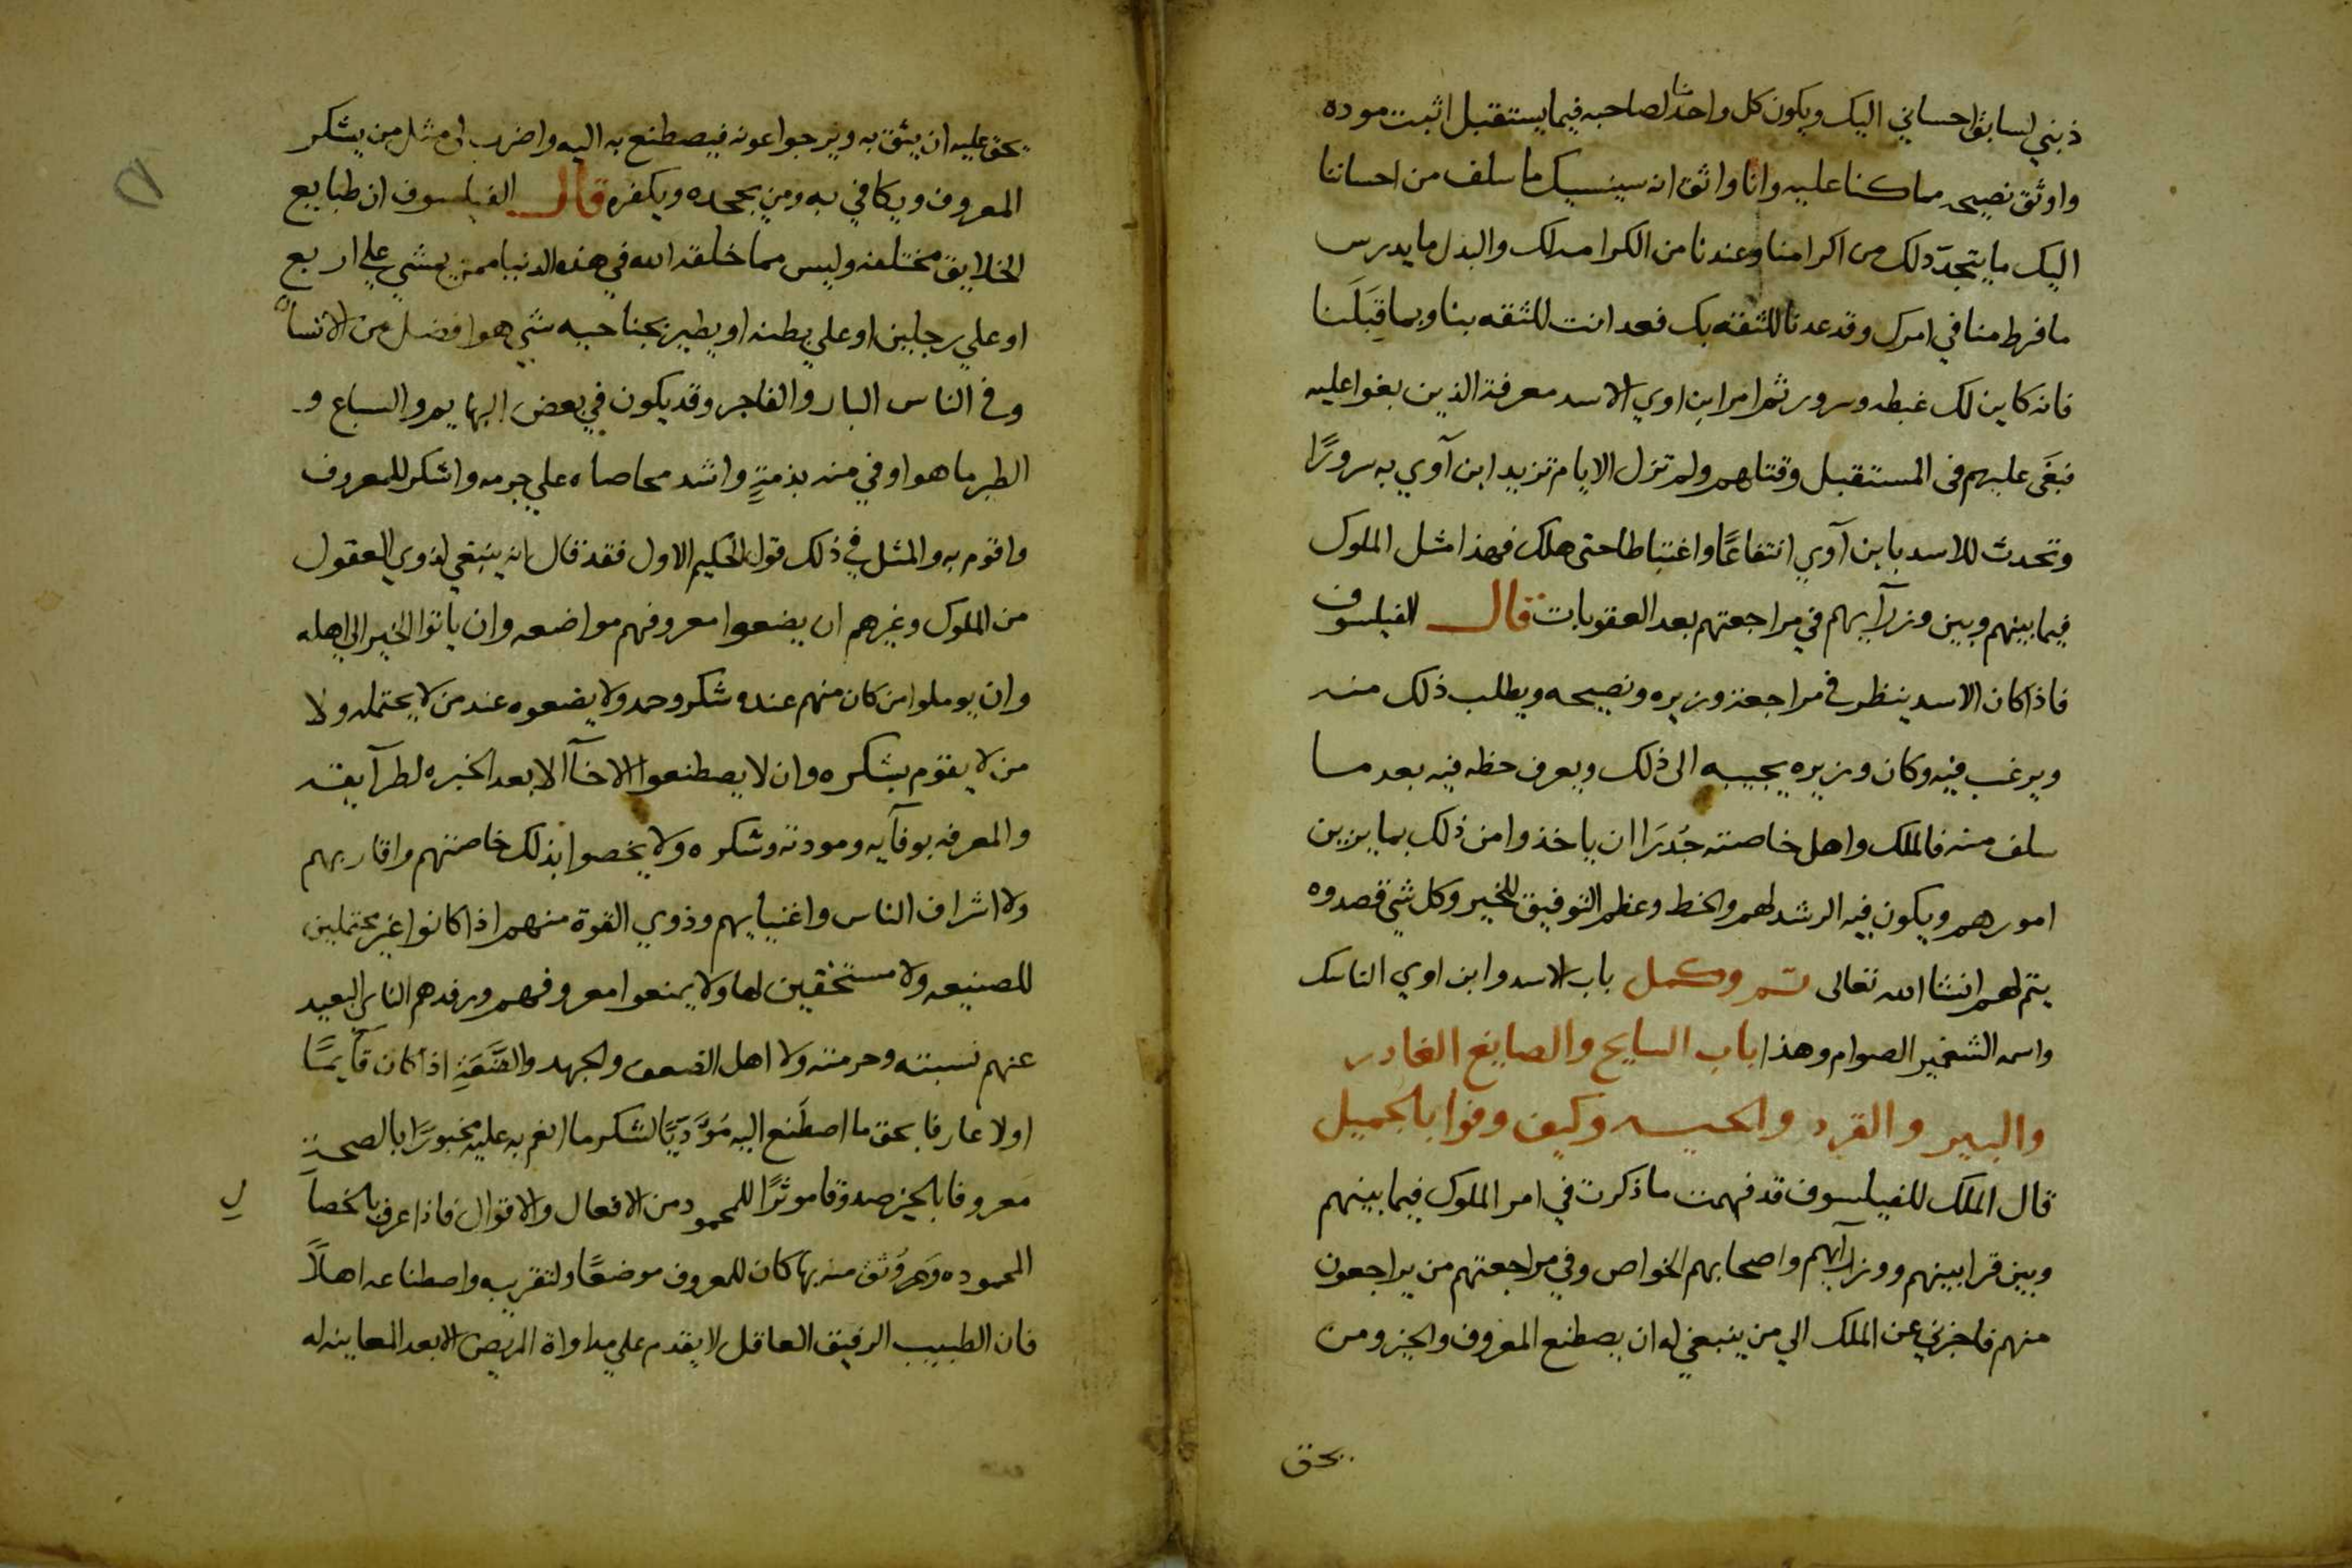 ذبني لسابق احساني اليك ويكون كل واحد منا لصاحبه فيما يستقبل اثبت موده
واوثق نصيحه مما كنا عليه وانا واثق انه سينسيك ما سلف من احساننا
اليك ما يتجدد لك من اكرامنا وعندنا من الكرامه لك والبدل ما يدرس
ما فرط منا في امرك وقد عدنا للثقه بك فعد انت للثقه بنا وبما قِبَلَنا
فانه كاين لك غبطه وسرور ثم امر ابن اوي الاسد معرفة الذين بغوا عليه
فبغَى عليهم فى المستقبل وقتلهم ولم تزل الايام تزيد ابن آوي به سرورًا
وتحدث للاسد بابن آوي انتفاعًا واغتباطا حتى هلك فهذا مثل الملوك
فيما بينهم وبين وزرآيهم في مراجعتهم بعد العقوبات قال الفيلسوف
فاذا كان الاسد ينظر في مراجعة وزيره ونصيحه ويطلب ذلك منه
ويرغب فيه وكان وزيره يجيبه الى ذلك ويعرف حظه فيه بعد ما
سلف منه فالملك واهل خاصته جُدَرَا ان ياخذوا من ذلك بما يزين
امورهم ويكون فيه الرشد لهم والخط وعظم التوفيق للخير وكل شي قصدوه
يتم لهم انشا الله تعالى تم وكمل باب الاسد وابن اوي الناسك
واسمه الشغبر الصوام وهذا باب السايح والصايغ الغادر
والببر والقرد والحيه وكيف وفوا بالجميل
قال الملك للفيلسوف قد فهمت ما ذكرت في امر الملوك فيما بينهم
وبين قرابينهم ووزرآيهم واصحابهم الخواص وفي مراجعتهم من يراجعون
منهم فاخبرني عن الملك الي من ينبغي له ان يصطنع المعروف والخير ومن
يحق
يحق عليه ان يثق به ويرجوا عونه فيصطنع به اليه واضرب لى مثل من يشكر
المعروف ويكافي به ومن يجحده ويكفره قال الفيلسوف ان طبايع
الخلايق مختلفه وليس مما خلقه الله في هذه الدنيا ممن يمشي علي اربع
او علي رجلين او علي بطنه او يطير بجناحيه شي هو افضل من الانسان
وفى الناس البار والفاجر وقد يكون في بعض البهايم والسباع و
الطير ما هو اوفي منه بذمةٍ واشد محاماه علي حرمه واشكر للمعروف
واقوم به والمثل في ذلك قول الحكيم الاول فقد قال انه ينبغي لذوي العقول
من الملوك وغيرهم ان يضعوا معروفهم مواضعه وان ياتوا الخير الى اهله
وان يوملوا من كان منهم عنده شكر وحمد ولا يضعوه عند من لا يحتمله ولا
من لا يقوم بشكره وان لا يصطنعوا الاخآ الا بعد الخبره لطرآيقه
والمعرفه بوفآيه ومودته وشكره ولا يخصوا بذلك خاصتهم واقاربهم
ولا اشراف الناس واغنيايهم وذوي القوة منهم اذا كانوا غير محتملين
للصنيعه ولا مستحقين لها ولا يمنعوا معروفهم ورفدهم الناى البعيد
عنهم نسبته وحرمته ولا اهل الضعف والجهد والضَّعَةِ اذا كان قآيمًا
اولا عارفا بحق ما اصطُنع اليه مُؤَدِّيًا لشكر ما انعم به عليه مخبورًا بالصحة
معروفا بالخير صدوقا موثرًا للمحمود من الافعال والاقوال فاذا عرف بالخصال
المحموده ووُثق منه بها كان للمعروف موضعًا ولتقريبه واصطناعه اهلاً
فان الطبيب الرفيق العاقل لا يقدم علي مداواة المريض الا بعد المعاينه له